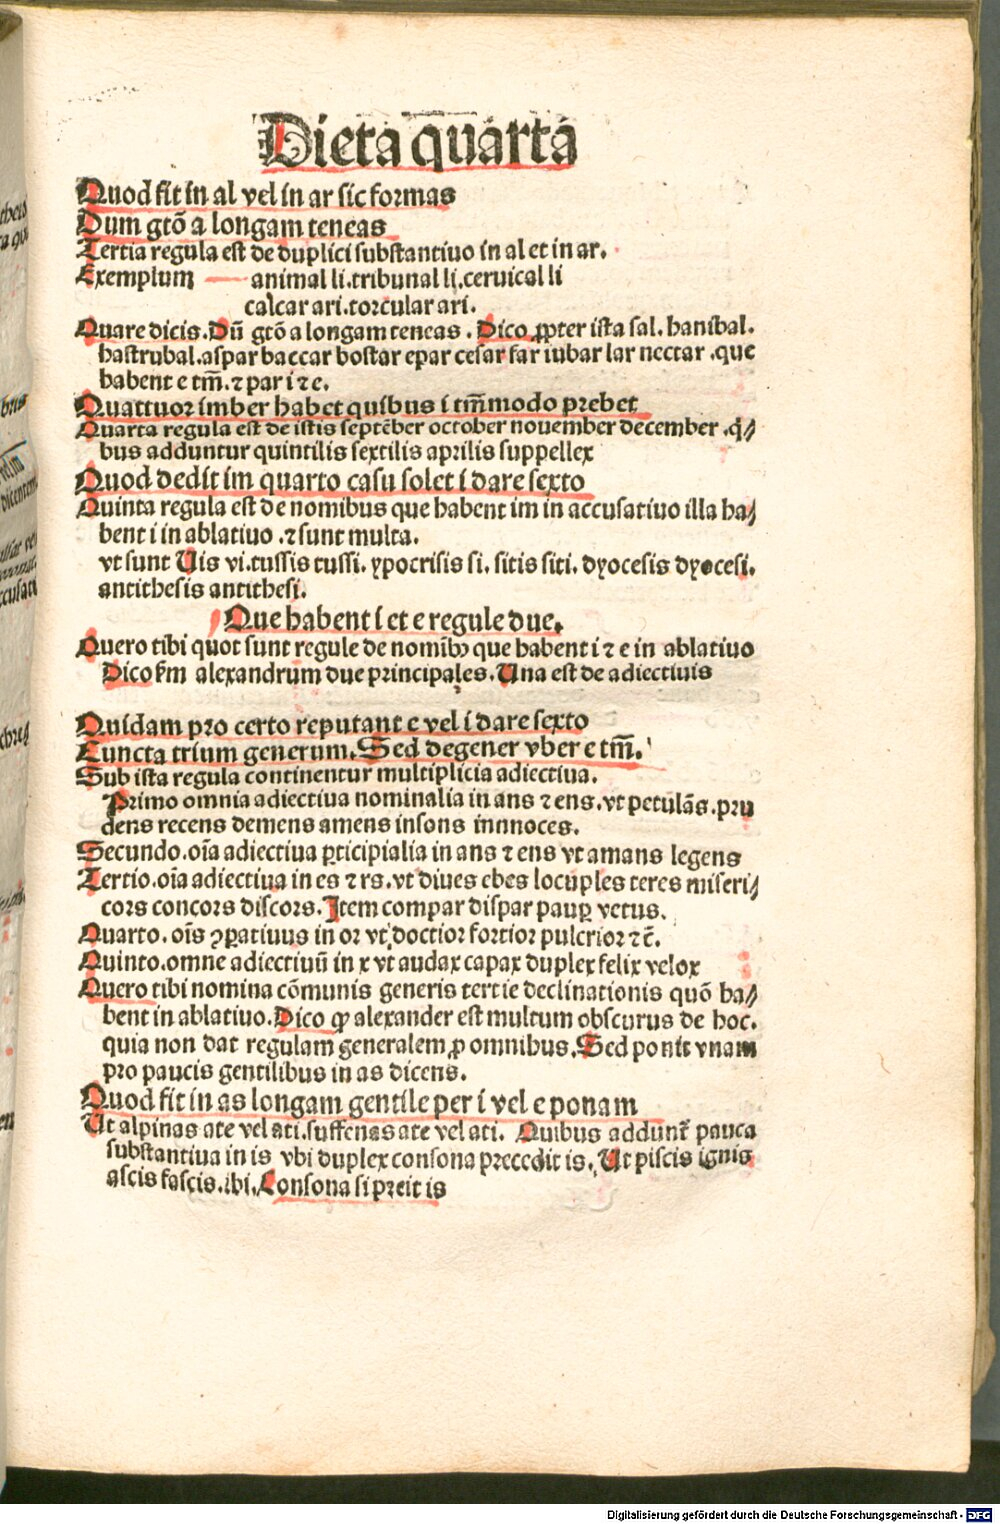 Dieta quarta
Quod fit in al vel in ar sic formas
Dum gtō a longam teneas
Tertia regula est de duplici substantiuo in al et in ar.
Exemplum animal li.tribunal li.ceruical li
calcar ari.torcular ari.
Quare dicis.Dū gtō a longam teneas. Dico ꝓpter ista sal. hanibal.
hastrubal.aspar baccar bostar epar cesar far iubar lar nectar .que
habent e tm̄.⁊ par i ⁊ e.
Quattuor imber habet quibus i tm̄modo prebet
Quarta regula est de istis septēber october nouember december .q̇⸗
bus adduntur quintilis sextilis aprilis suppellex
Quod dedit im quarto casu solet i dare sexto
Quinta regula est de nomibus que habent im in accusatiuo illa ha⸗
bent i in ablatiuo .⁊ sunt multa.
vt sunt Uis vi.tussis tussi. ypocrisis si. sitis siti. dyocesis dyocesi.
antithesis antithesi.
Que habent i et e regule due.
Quero tibi quot sunt regule de nomibꝰ que habent i ⁊ e in ablatiuo
Dico ẜm alexandrum due principales.Una est de adiectiuis
Quidam pro certo reputant e vel i dare sexto
Cuncta trium generum.Sed degener vber e tm̄.
Sub ista regula continentur multiplicia adiectiua.
Primo omnia adiectiua nominalia in ans ⁊ ens.vt petulās.pru
dens recens demens amens insons innnoces.
Secundo.oīa adiectiua ꝑticipialia in ans ⁊ ens vt amans legens
Tertio.oīa adiectiua in es ⁊ rs.vt diues ebes locuples teres miseri⸗
cors concors discors.Item compar dispar pauꝑ vetus.
Quarto. oīs ꝯꝑatiuus in or vt doctior fortior pulcrior ⁊ c̄.
Quinto.omne adiectiuū in x vt audax capax duplex felix velox
Quero tibi nomina cōmunis generis tertie declinationis quō ha⸗
bent in ablatiuo.Dico ꝙ alexander est multum obscurus de hoc.
quia non dat regulam generalem ꝓ omnibus.Sed ponit vnam
pro paucis gentilibus in as dicens.
Quod fit in as longam gentile per i vel e ponam
Ut alpinas ate vel ati.suffenas ate vel ati. Quibus addunt̄ pauca
substantiua in is vbi duplex consona precedit is. Ut piscis ignis
ascis fascis.ibi.Consona si preit is
Digitalisierung gefördert durch die Deutsche Forschungsgemeinschaft - DFG